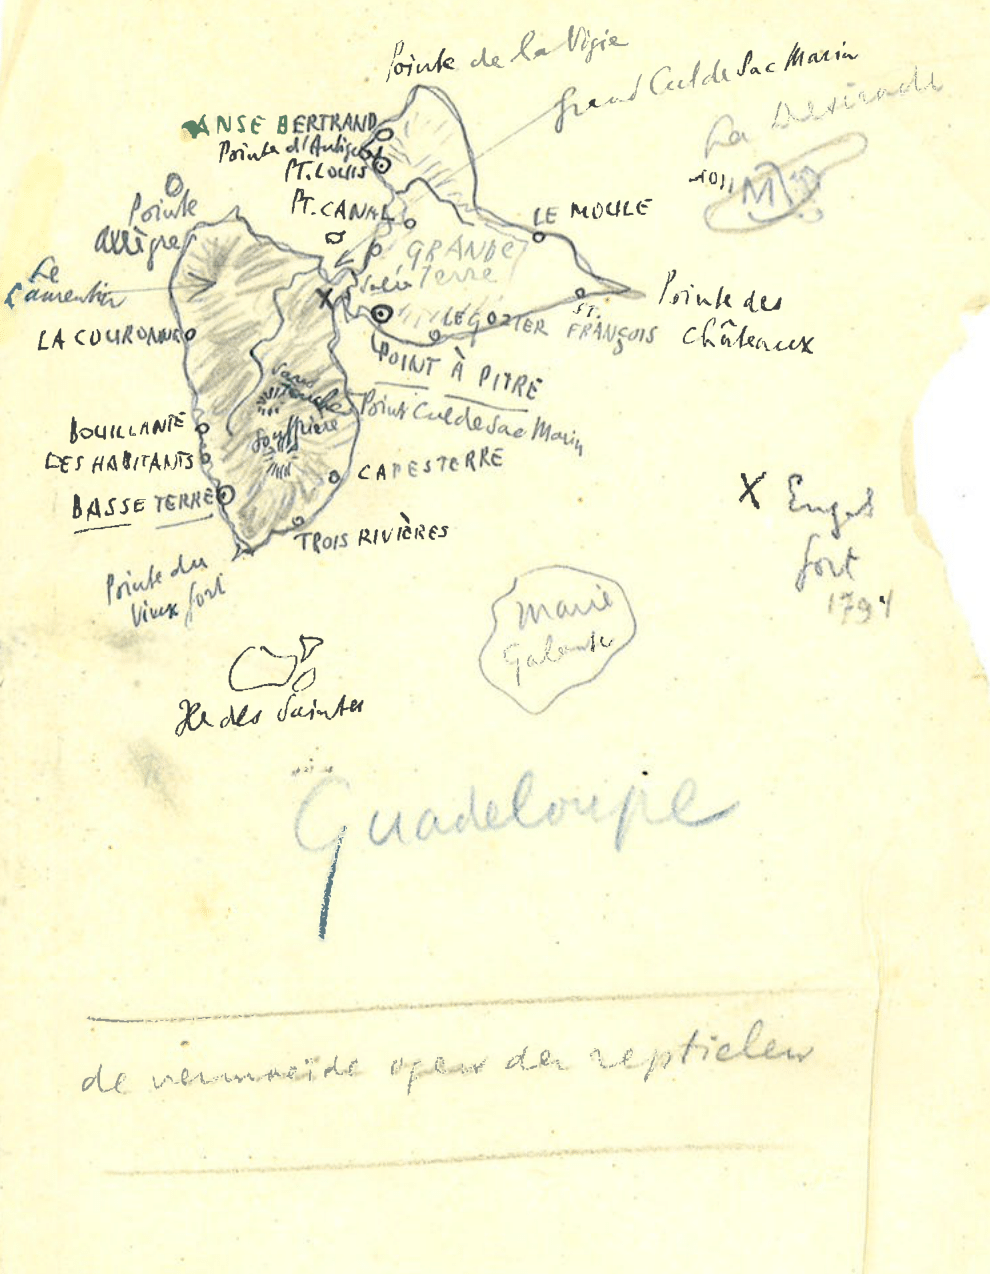 Pointe de la Vigie
Grand Cul de Sac Marin
La Désirade
ANSE BERTRAND
Pointe d'Antigues
PT. LOUIS
PT. CANAL
Pointe
Allègre
LE MOULE
GRANDE
Terre
Salée
Le
Lamentin
Pointe des
Châteaux
ST.
FRANÇOIS
LE GOZIER
LA COURONNE
POINT À PITRE
Sans
Touche
Point Cul de Sac Marin
Souffrière
BOUILLANTE
DES HABITANTS
CAPESTERRE
BASSE TERRE
X Engels
fort
1794
TROIS RIVIÈRES
Pointe du
Vieux fort
Marie
Galante
Ile des Saintes
Guadeloupe
de vermoeide ogen der reptielen